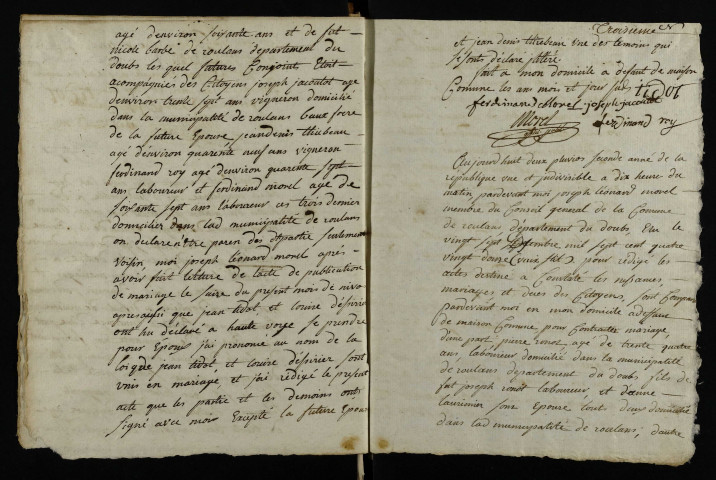 agé denviron soixante ans et de fut
nicole barbe de roulans departement du
doubs les quel futures Conjoint Etoit
acompagniés des Citoyens joseph jacoutot age
denviron trente sept ans vigneron domicilié
dans la municipalité de roulans baut frere
de la future Epouse, jeandenis thiebeau
agé d'environ quarente neuf ans vigneron
ferdinand roy agé denviron quarente sept
ans laboureur et ferdinand morel agé de
soixante sept ans laboureur ces trois dernier
domicilier dans lad municipalité de roulans
on declare n'etre paren des dt partie seulement
voisin, moi joseph léonard morel après
avoir fait letture de lacte de publication
de mariage le du present mois de nivo
apres aussi que jean tidot, et louise désirier
ont hu déclaré a haute voye se prendre
pour Epoux jai prononcé au nom de la
loi que jean tidot, et louise désirier sont
unis en mariage, et jai rédigé le present
acte que les partie et les demoins onts
signé avec moi Excepté la future Epouse
Troisieme
et jean denis thiebeau une des temoins qui
se sonts déclaré jlitéré
fait a mon domicile a defaut de maison
Commune les ans mois et jour sud
ferdinand Morel joseph jacoutot
Morel ferdinand roy
Aujourdhuit deux pluvios seconde anné de la
republique une et indivisible a dix heure du
matin pardevant moi joseph léonard morel
membre du Conseil general de la Commune
de roulans département du doubs, Elu le
vingt sept Décembre mil sept cent quatre
vingt douze pour rédigé les
actes destiné a Constaté les nésances
mariages et deces des Citoyens, sont Comparu
pardevant moi en mon domicile a defaut
de maison Commune pour Contracter mariage,
d'une part pierre agé de trente quatre
ans, laboureur domicilié dans la municipalité
de roulans departement du doubs fils de
fut joseph laboureur, et d'anne
laurimier sons Epouse tout deux domicilié
dans lad municipalité de roulans; d'autre